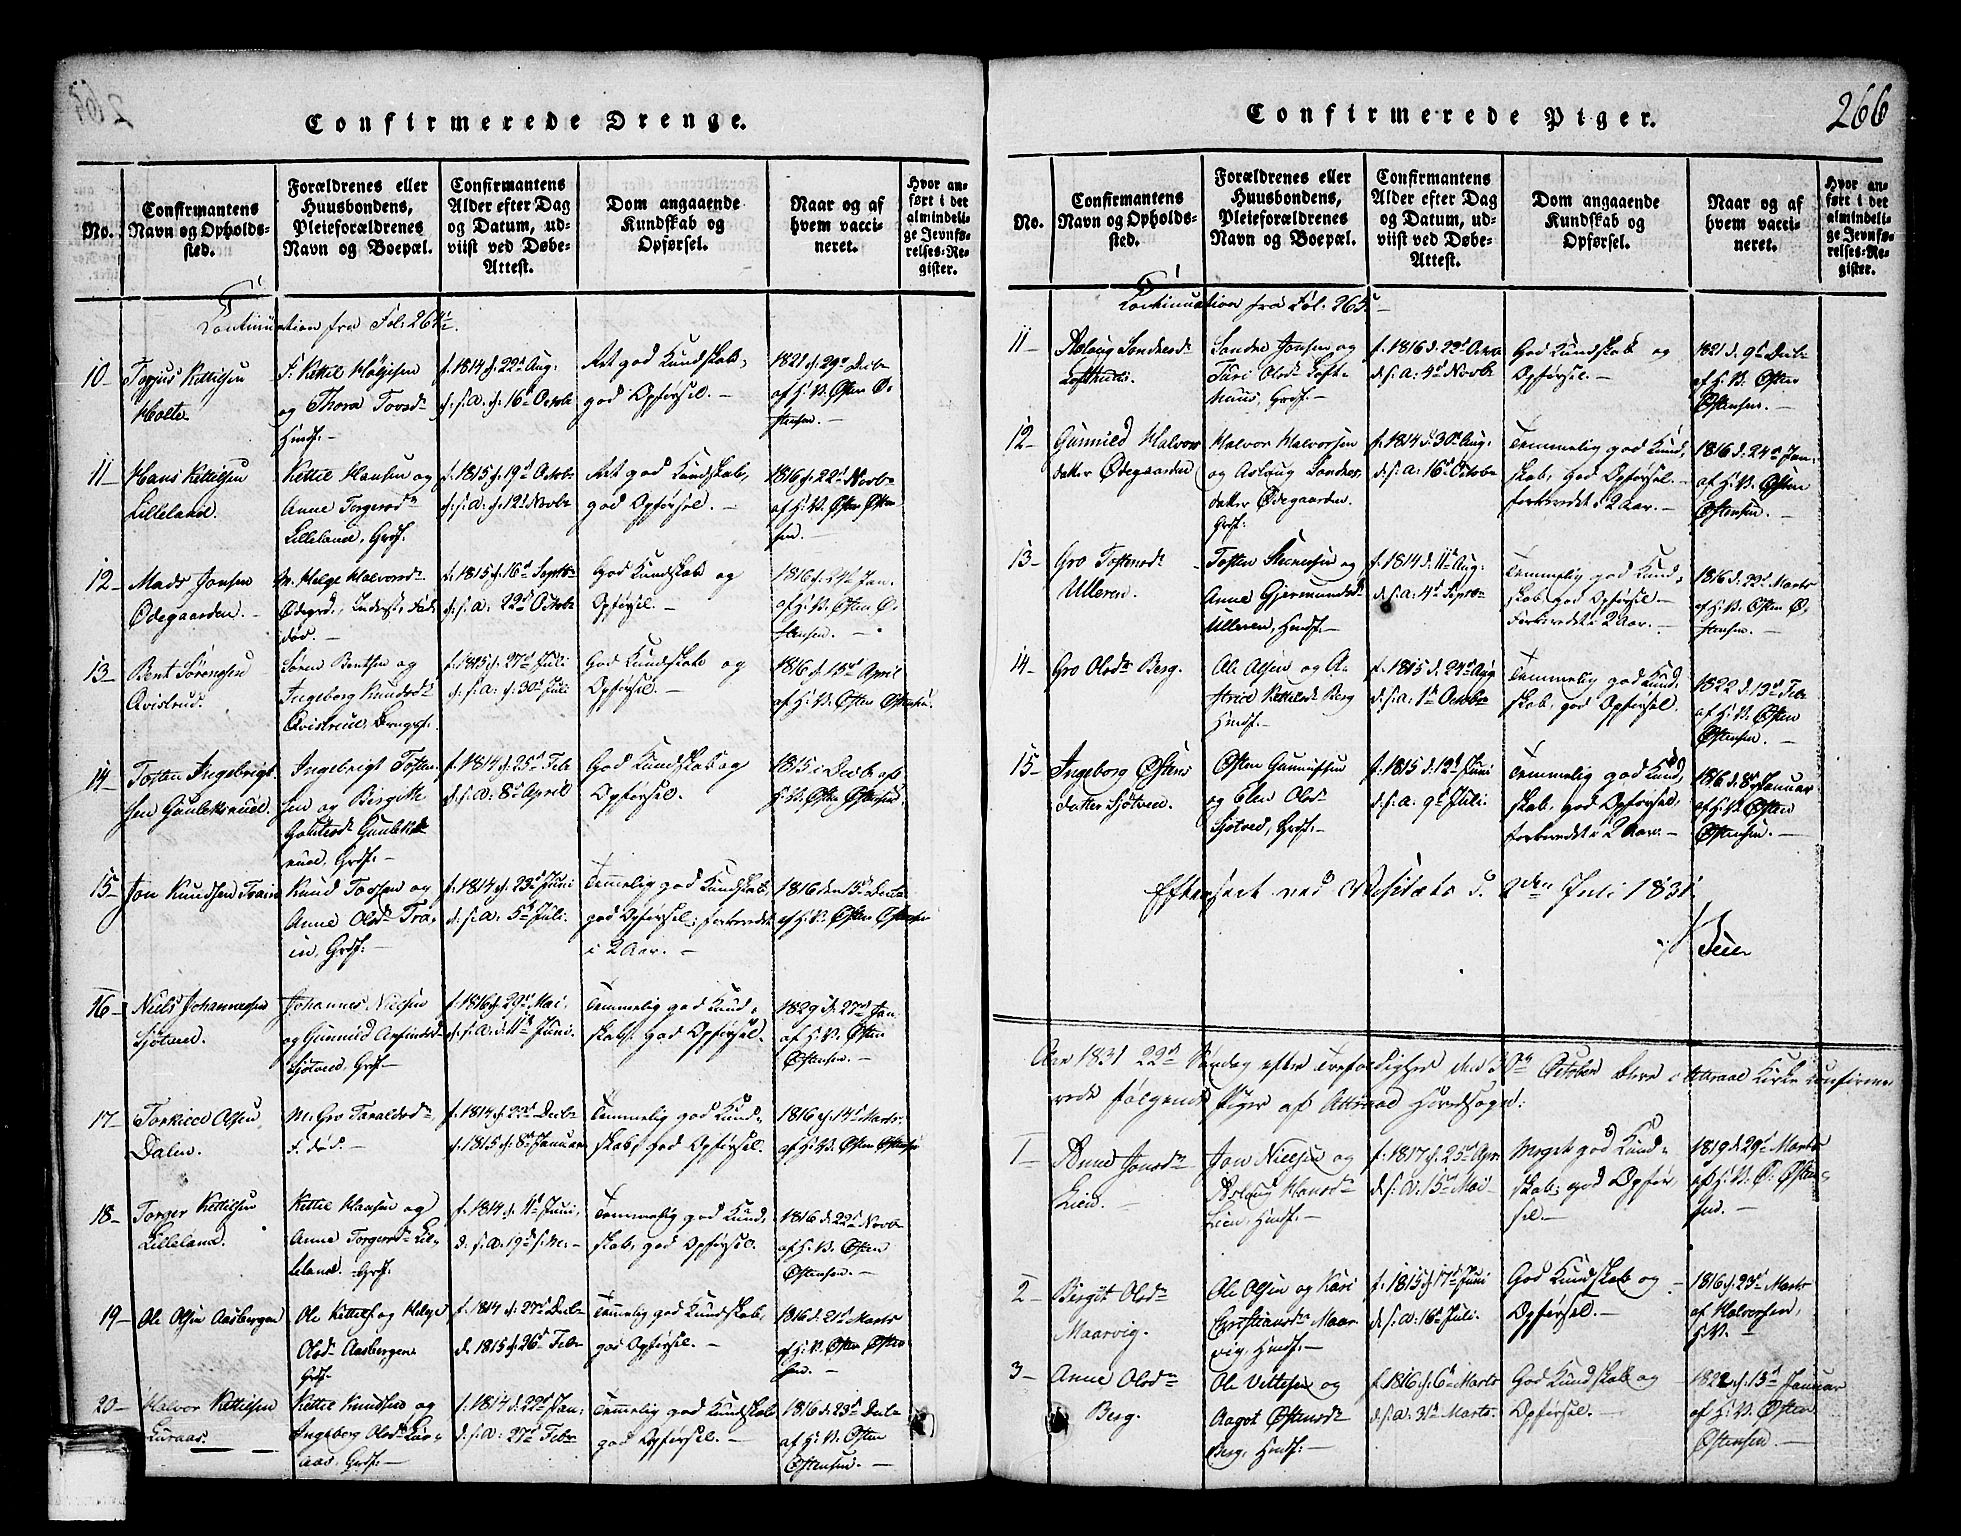 Confirmerede Drenge.
No.
Confirmantens
Navn og Opholds-
sted.
Forældrenes eller
Huusbondens,
Pleieforældrenes
Navn og Boepæl.
Confirmantens
Alder efter Dag
og Datum, ud-
viist ved Døbe-
Attest.
Dom angaaende
Kundskab og
Opførsel.
Naar og af
hvem vacci-
neret.
Hvor an-
ført i det
almindeli-
ge Jevnfø-
relses-Re-
gister.
Continuation fra Fol: 264
10 –
Kittilsen
Holte
F. Kittil
og Thora Tovsd
Hmdf: –
f. 1814 d. 22d Aug:
d. s. a. d. 16d Octob
Ret god Kundskab,
god Opførsel. –
1821 d. 29d Decb
af H. B. Østen Ø-
stensen. –
11 –
Hans Kittilsen
Lilleland.
Kittil Hansen og
Anne Torgersd
Lilleland, Grdf.
f. 1815 d. 19d Octob
d. s. a. d. 12d Novb
Ret god Kundskab,
god Opførsel. –
1816 d. 22d Novb
af H. B. Østen Østen
sen. –
12 –
Mads Jonsen
Ødegaarden. –
M. Helge Halvorsd
Ødegrd., Inderst, Fad.
død. –
f. 1815 d. 16d Septb
d. s. a: 22d Octob
God Kundskab og
Opførsel. –
1816 d. 24d Jan.
af H. B. Østen Ø-
stensen. –
13 –
Bent Sørensen
Qvislrud.
Søren Bentsen og
Ingeborg Knudsd
f. 1815 d. 27d Juli
d. s. a: d. 30d Juli
God Kundskab og
Opførsel. –
1816 d. 15d April
af H. B. Østen Østensen.
14 –
Tosten Ingebrigt
sen
Ingebrigt Tosten-
sen og Birgitte
Grdf: –
f. 1814 d. 25d Feb
d. s. a: 8d April
God Kundskab og
Opførsel.
1815 i Decb af
H. B. Østen Østensen.
15 –
Jon Knudsen Train
Knud Torsen og
Anne Olsd Tra-
in, Grdf: –
f. 1814 d. 23d Juni
d. s. a: 5d Juli.
Temmelig god Kundskab,
god Opførsel; forberedet
i 2 Aar. –
1816 den 15d Decb
af H. B. Østen Østensen
16 –
Niels Johannesen
Sjøtved.
Johannes Nielsen
og Gunnild
Sjøtved, Grdf –
f. 1816 d. 29d Mai
d. s. a: d. 11d Juni.
Temmelig god Kund-
skab, god Opførsel. –
1829 d. 27d Jan
af H. B. Østen
Østensen. –
17 –
Torkild Olsen
Dalen.
M: Gro Taraldsd
F. død. –
f. 1814 d. 23d Decb
d. 1815 d. 8d Januar
Temmelig god Kund-
skab, god Opførsel.
1816 d. 14d Marts
af H. B. Østen Østensen
18 –
Torger Kittilsen
Lilleland.
Kittil Hansen og
Anne Torgersd Lil-
leland. Grdf.
f. 1814 d. 11d Juni,
d. s. a. 19d s. M. –
Temmelig god Kund-
skab, god Opførsel.
1816 d. 22d Novb
af H. B. Østen
Østensen. –
19 –
Ole Olsen Aasbergen
Ole Kittels. og Helge
Olsd Aasbergen
Grdf –
f. 1814 d: 27d Decb
d. 1815 d. 26d Feb
Temmelig god Kundskab,
god Opførsel. –
1816 d. 21d Marts
af H. B. Østen Østen-
sen. –
20 –
Halvor Kittilsen
Luraas. –
Kittil Knudsen og
Ingeborg Olsd Lur-
aas, Grdf: –
f. 1814 d. 22d Jan:
d. s. a: 27d Feb
Temmelig god Kundskab
god Opførsel. –
1816 d. 23d Decb
af H. B. Østen
Østensen. –
Confirmerede Piger.
266
No.
Confirmantens
Navn og Opholds-
sted.
Forældrenes eller
Huusbondens,
Pleieforældrenes
Navn og Boepæl.
Confirmantens
Alder efter Dag
og Datum, ud-
viist ved Døbe-
Attest.
Dom angaaende
Kundskab og
Opførsel.
Naar og af
hvem vacci-
neret.
Hvor an-
ført i det
almindeli-
ge Jevnfø-
relses-Re-
gister.
Continuation fra Fol. 265 –
11 –
Aslaug Sondresd
Lofthuus. –
Sondre Jonsen og
Turi Olsd Loft-
huus, Grdf. –
f. 1816 d. 23d Octob
d. s. a: 4d Novb
God Kundskab og
Opførsel. –
1821 d. 9d Decb
af H. B. Østen
Østensen. –
12 –
Gunnild Halvors
datter Ødegaarden
Halvor Halvorsen
og Aslaug Sondres
datter Ødegaarden.
Grdf:
f. 1814 d. 30d Aug:
d. s. a: 16d Octob
Temmelig god Kund-
skab, god Opførsel. –
forberedet i 2 Aar. –
1816 d. 24d Jan.
af H. B. Østen
Østensen. –
13 –
Gro Tostensd
Ulleren.
Tosten Steenersen og
Anne Gjermundsd
Ulleren, Hmdf: –
f. 1814 d. 11d Aug:
d. s. a: 4d
Temmelig god Kund-
skab, god Opførsel –
Forberedet i 2 Aar. –
1816 d. 22d Marts
af H. B. Østen Ø-
stensen. –
14 –
Gro Olsd Berg.
Ole Olsen og A-
strid Kittilsd Berg
Hmdf: –
f. 1815 d. 24d Aug
d. s. a: 1d Octob
Temmelig god Kund-
skab, god Opførsel.
1822 d. 13d Feb
af H. B. Østen
Østensen. –
15 –
Ingeborg Østens
datter Sjøtven.
Østen Gunnufsen
og Elen Olsd
Sjøtved, Grdf: –
f. 1815 d. 12d Juni
d. s. a. 9d Juli.
Temmelig god Kund-
skab, god Opførsel,
forberedet i 2 Aar. –
1816 d. 8d Januar
af H. B. Østen
Østensen. –
Efterseet ved Visitats d. 2den Juli 1831
Aar 1831 22d Søndag efter Trefoldighed den 30te October bleve i Attraae Kirke confirme
rede følgende Piger af Attraae Hovedsogn:
1 –
Anne Jonsd
Lien. –
Jon Nielsen og
Aslaug Hansd
Lien, Hmdf: –
f. 1817 d. 25d Apr
d. s. a: 15d Mai –
Meget god Kund-
skab; god Opfør-
sel. –
1819 d. 29d Marts
af H. B. Ø: Østen-
sen. –
2 –
Birgit Olsd
Maarvig.
Ole Olsen og Kari
Christiansd Maar-
vig, Hmdf: –
f. 1815 d. 17d Juni
d. s. a: 16d Juli.
God Kundskab og
Opførsel. –
1816 d. 23d Marts
af Halvorsen,
H. B. –
3 –
Anne Olsd
Berg.
Ole Vettesen og
Aagot Østensd
Berg, Hmdf: –
f. 1816 d. 6d Marts
d. s. a: 31d Marts.
God Kundskab og
Opførsel. –
1822 d. 13d Januar
af H. B. Østen
Østensen. –